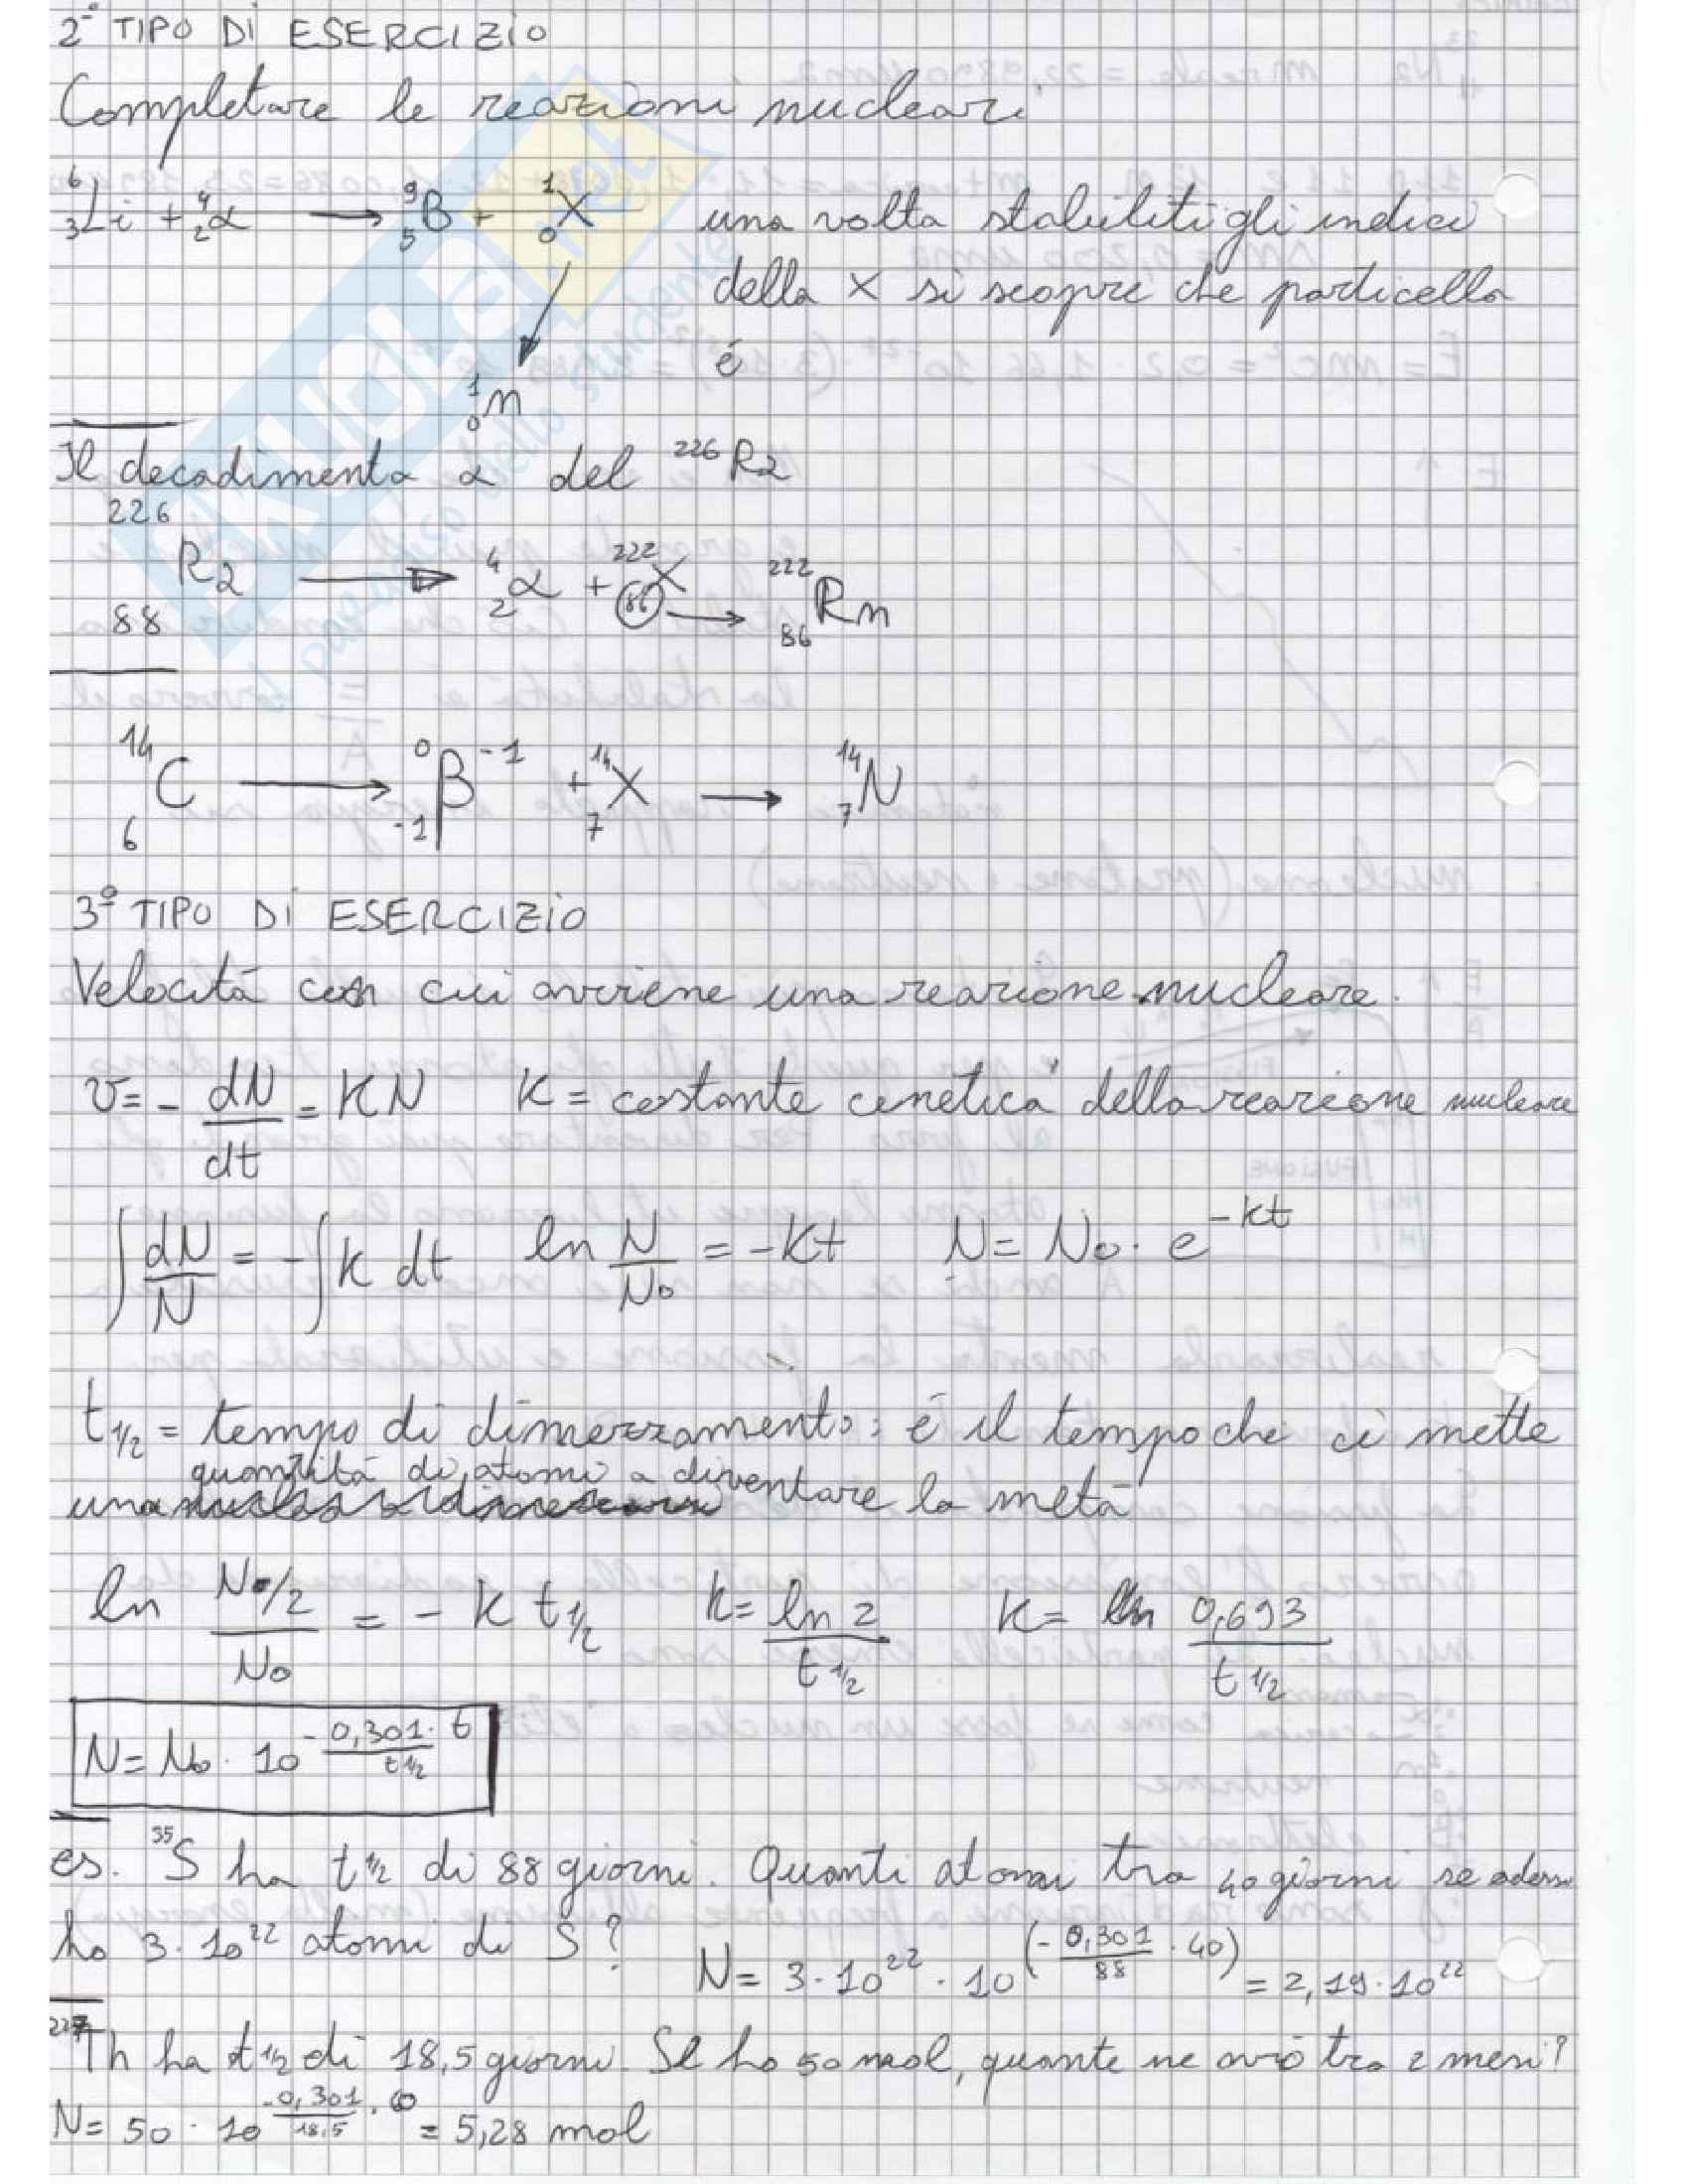 2° TIPO DI ESERCIZIO
Completare le reazioni nucleari
⁶₃Li + ⁴₂α → ⁹₅B + ¹₀X una volta stabiliti gli indici
della X si scopre che particella
é
¹₀n
Il decadimento α del ²²⁶Ra
²²⁶₈₈Ra → ⁴₂α + ²²²₈₆X → ²²²₈₆Rn
¹⁴₆C → ⁰₋₁β⁻¹ + ¹⁴₇X → ¹⁴₇N
3° TIPO DI ESERCIZIO
Velocitá con cui avviene una reazione nucleare.
v = - dN/dt = KN K = costante cinetica della reazione nucleare
∫ dN/N = -∫ k dt ln N/N₀ = -Kt N = N₀ · e^(-kt)
t½ = tempo di dimezzamento: é il tempo che ci mette
una quantitá di atomi a diventare la metá
ln (N₀/2)/N₀ = - K t½ k = ln 2/t½ K = 0,693/t½
N = N₀ · 10^(-0,301/t½ · t)
es. ³⁵S ha t½ di 88 giorni. Quanti atomi tra 40 giorni se adesso
ho 3·10²² atomi di S? N = 3·10²² · 10^(-0,301/88 · 40) = 2,19·10²²
²²⁷Th ha t½ di 18,5 giorni. Se ho 50 mol, quante ne avrò tra 2 mesi?
N = 50 · 10^(-0,301/18,5 · 60) = 5,28 mol
SKUOLA.net
il paradiso dello studente